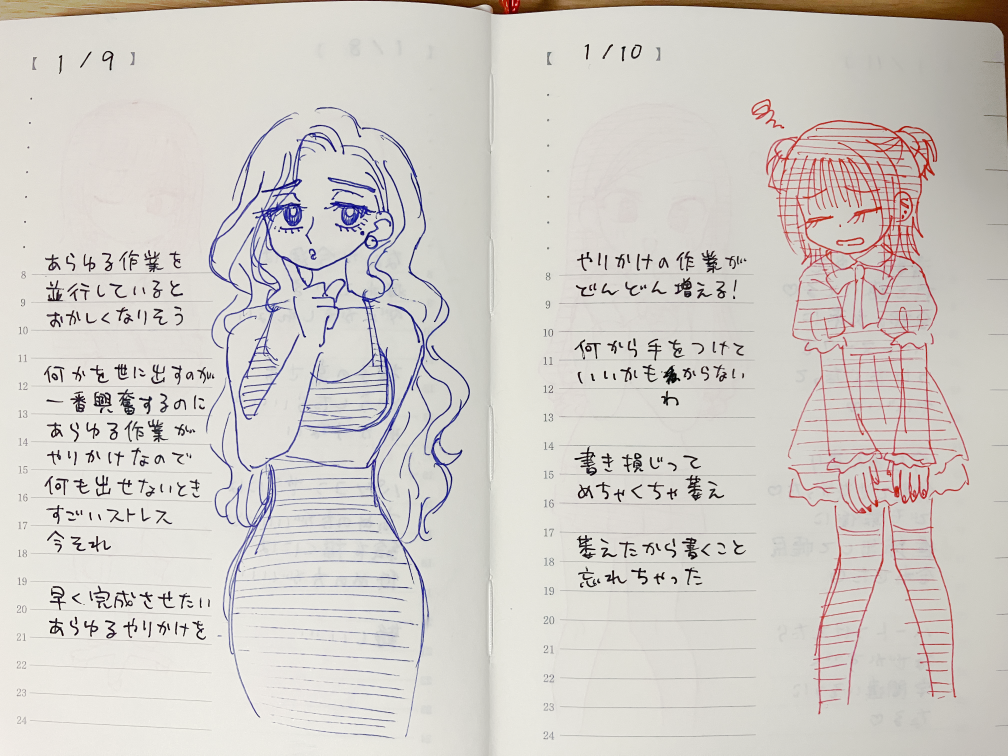 【 1/9 】
あらゆる作業を
並行していると
おかしくなりそう
何かを世に出すのが
一番興奮するのに
あらゆる作業が
やりかけなので
何も出せないとき
すごいストレス
今それ
早く完成させたい
あらゆるやりかけを
8
9
10
11
12
13
14
15
16
17
18
19
20
21
22
23
24
【 1/10 】
やりかけの作業が
どんどん増える!
何から手をつけて
いいかもからない
わ
書き損じって
めちゃくちゃ萎え
萎えたから書くこと
忘れちゃった
8
9
10
11
12
13
14
15
16
17
18
19
20
21
22
23
24